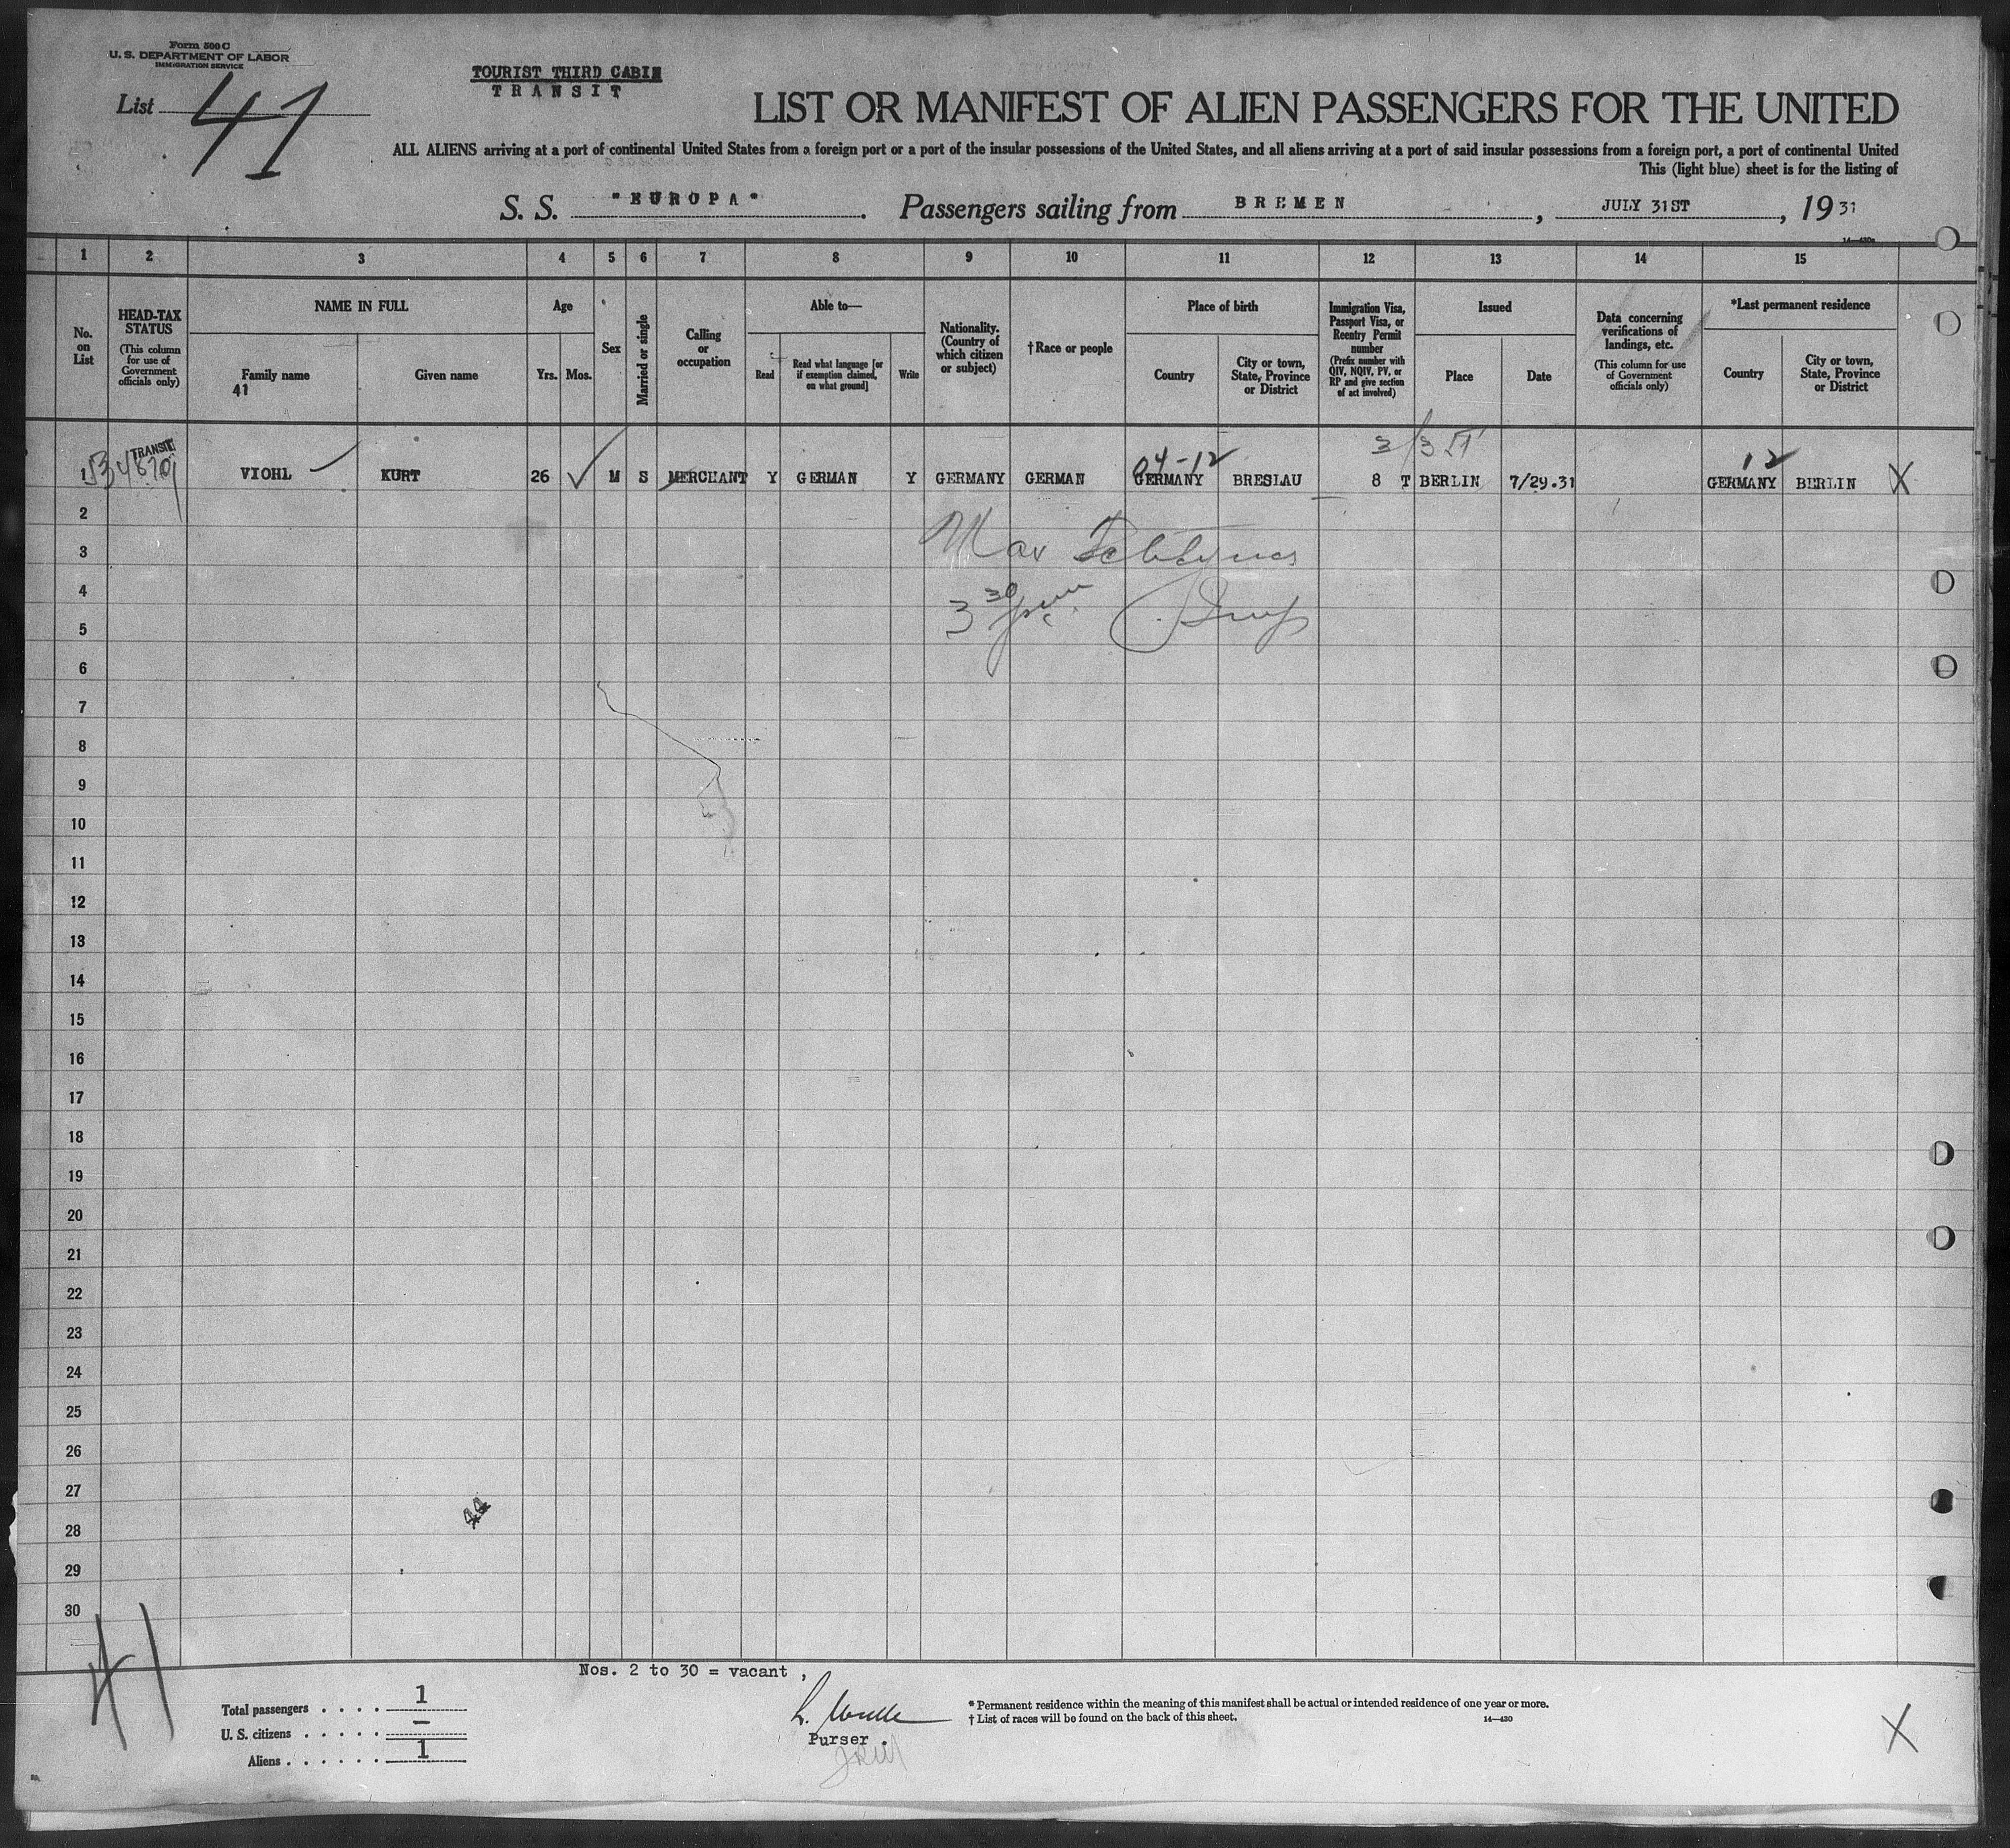 Form 500 C
U. S. DEPARTMENT OF LABOR
IMMIGRATION SERVICE
List 41
TOURIST THIRD CABIN
TRANSIT
LIST OR MANIFEST OF ALIEN PASSENGERS FOR THE UNITED
ALL ALIENS arriving at a port of continental United States from a foreign port or a port of the insular possessions of the United States, and all aliens arriving at a port of said insular possessions from a foreign port, a port of continental United
This (light blue) sheet is for the listing of
S. S. "EUROPA". Passengers sailing from BREMEN, JULY 31ST, 1931
1 2 3 4 5 6 7 8 9 10 11 12 13 14 15
No. on List
HEAD-TAX STATUS
(This column for use of Government officials only)
NAME IN FULL
Family name
41
Given name
Age
Yrs. Mos.
Sex
Married or single
Calling or occupation
Able to—
Read
Read what language [or if exemption claimed, on what ground]
Write
Nationality. (Country of which citizen or subject)
†Race or people
Place of birth
Country
City or town, State, Province or District
Immigration Visa, Passport Visa, or Reentry Permit number
(Prefix number with QIV, NQIV, PV, or RP and give section of act involved)
Issued
Place
Date
Data concerning verifications of landings, etc.
(This column for use of Government officials only)
*Last permanent residence
Country
City or town, State, Province or District
TRANSIT
04-12
12
1 VIOHL KURT 26 M S MERCHANT Y GERMAN Y GERMANY GERMAN GERMANY BRESLAU 8 T BERLIN 7/29.31 GERMANY BERLIN X
2
3
4
5
6
7
8
9
10
11
12
13
14
15
16
17
18
19
20
21
22
23
24
25
26
27
28
29
30
44
41
Nos. 2 to 30 = vacant
Total passengers . . . . 1
U. S. citizens . . . . . —
Aliens . . . . . . 1
Purser.
* Permanent residence within the meaning of this manifest shall be actual or intended residence of one year or more.
† List of races will be found on the back of this sheet.
14—430
X